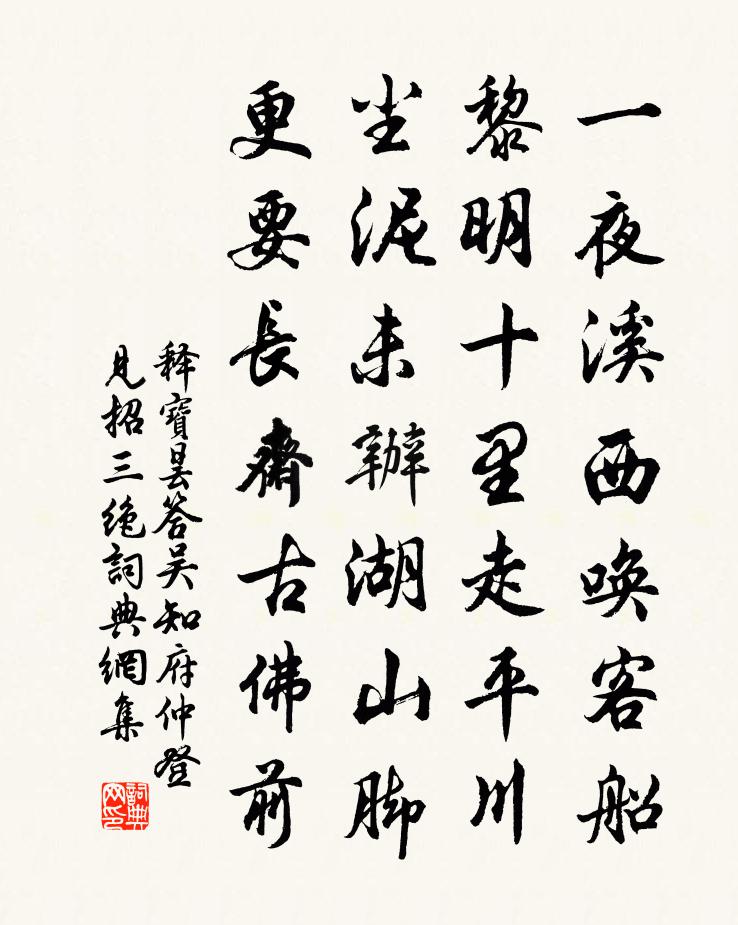 一夜溪西喚客船
黎明十里走平川
尘泥未辦湖山腳
更要長齋古佛前
释寶曇答吴知府仲登
見招三绝詞典網集
詞典網印